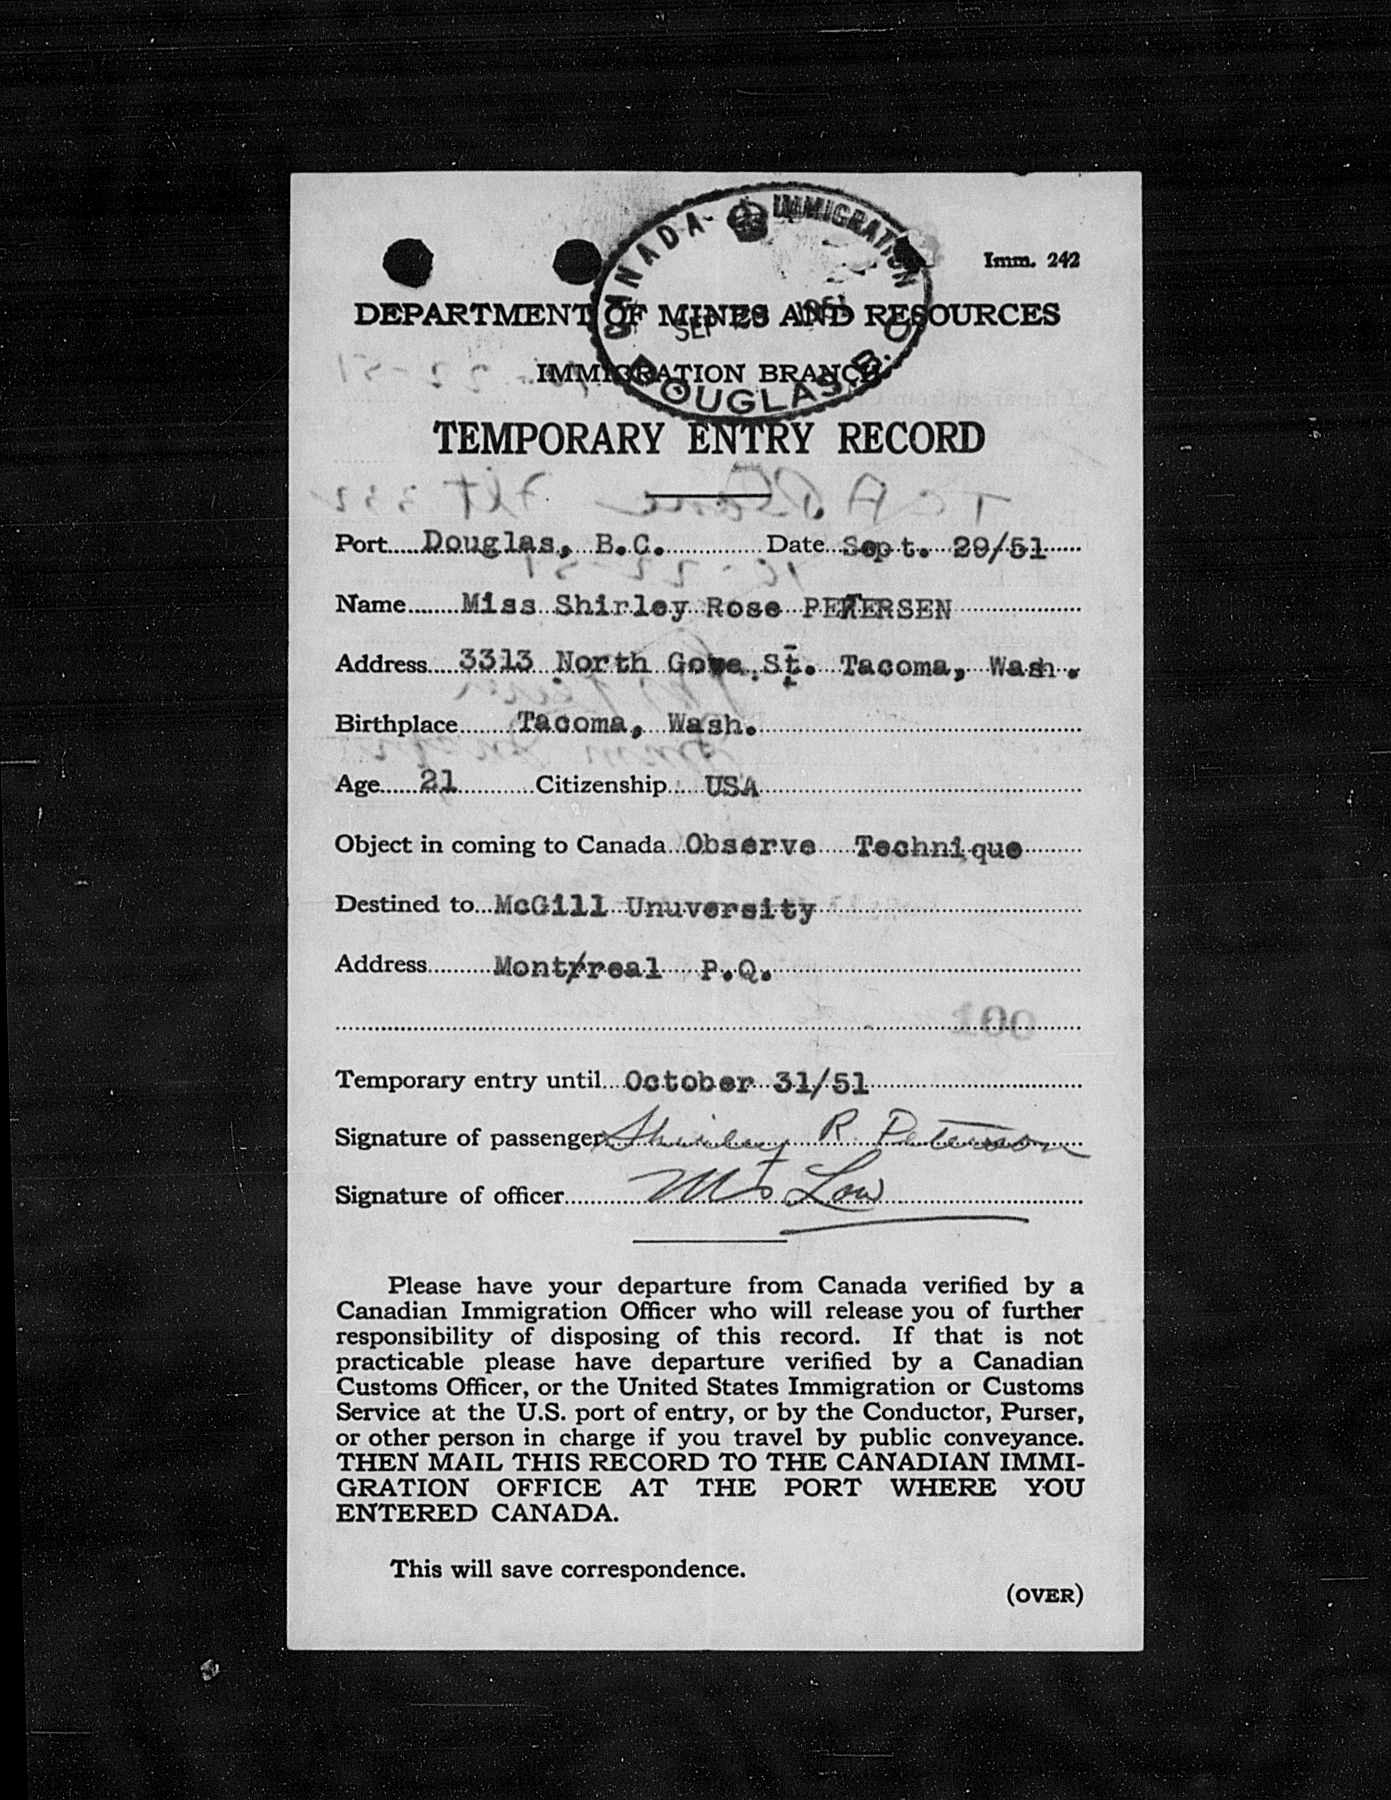 CANADA - IMMIGRATION
SEP 29 1951
DOUGLAS, B.C.
Imm. 242
DEPARTMENT OF MINES AND RESOURCES
IMMIGRATION BRANCH
TEMPORARY ENTRY RECORD
Port.....Douglas, B.C...............Date...Sept. 29/51......
Name........Miss Shirley Rose PETERSEN....................
Address.....3313 North Gove St. Tacoma, Wash.
Birthplace.........Tacoma, Wash.
Age......21............Citizenship......USA
Object in coming to Canada...Observe Technique.........
Destined to...McGill Unuversity
Address..........Mont/real P.Q.
100
Temporary entry until...October 31/51
Signature of passenger Shirley R. Peterson
Signature of officer............ Low
Please have your departure from Canada verified by a
Canadian Immigration Officer who will release you of further
responsibility of disposing of this record. If that is not
practicable please have departure verified by a Canadian
Customs Officer, or the United States Immigration or Customs
Service at the U.S. port of entry, or by the Conductor, Purser,
or other person in charge if you travel by public conveyance.
THEN MAIL THIS RECORD TO THE CANADIAN IMMI-
GRATION OFFICE AT THE PORT WHERE YOU
ENTERED CANADA.
This will save correspondence.
(OVER)